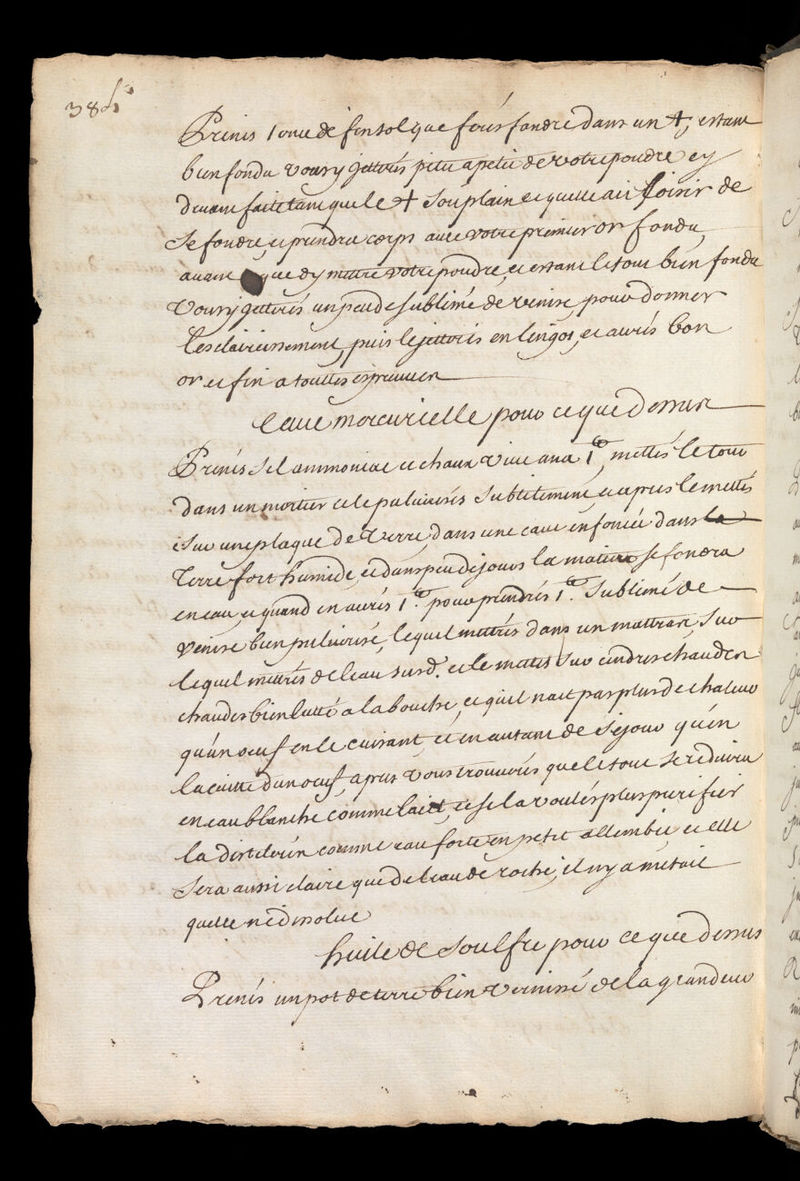 384
Prenés 1 once de fin sol que ferés fondre dans un ✝, estant
bien fondu vous y jetterés petit a petit de votre poudre cy
devant faite tant que le ✝ soit plain et quelle ait loisir de
se fondre et prendre corps avec votre premier or fondu,
avant que dy mettre votre poudre, et estant le tout bien fondu
vous y jetterés un peu de sublimé de venise pour donner
lesclaircissement, puis le jetterés en lingot, et aurés bon
or et fin a touttes espreuves
leaue mercurielle pour ce que dessus
Prenés sel ammoniac et chaux vive ana 1 lb, mettés le tout
dans un mortier et le pulverisés subtilement, et apres le mettés
sur une plaque de verre, dans une cave enfoncée dans la
terre fort humide, et dans peu de jours la matiere se fondra
en eau, et quand en aurés 1 lb. pour prendrés 1 lb. sublimé de
venise bien pulverisé, lequel mettrés dans un mattras, sur
lequel mettrés de leau susd. et le mettés sur cendres chaudes
chaudes bien lutté a la bouche, et quil nait pas plus de chaleur
qu'un oeuf en le cuisant, et en autant de sejour qu'en
la cuitte dun oeuf, apres vous trouverés que le tout se reduira
en eau blanche comme lait, et se la voulés plus purifier
la distilerés comme eau forte en petit allembic, et elle
sera aussi claire que de leau de roche, il ny a metail
quelle ne dissolve
huile de soulfre pour ce que dessus
Prenés un pot de terre bien vernissé de la grandeur